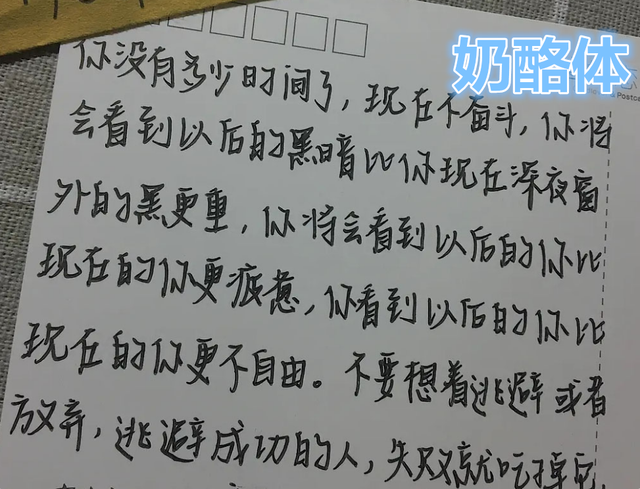 奶酪体
Postca
你没有多少时间了，现在不奋斗，你将
会看到以后的黑暗比你现在深夜窗
外的黑更重，你将会看到以后的你比
现在的你更疲惫，你看到以后的你比
现在的你更不自由。不要想着逃避或者
放弃，逃避成功的人，失败就吃掉它，